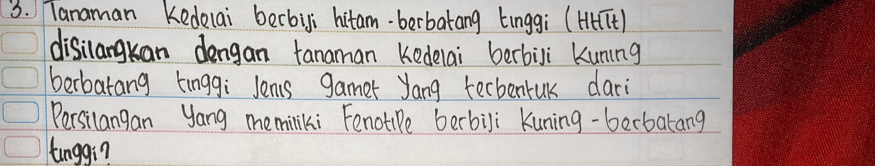 3. Tanaman kedelai berbiji hitam - berbatang tinggi (HHTt)
disilangkan dengan tanaman kedelai berbiji kuning
berbatang tinggi Jenis gamet yang terbentuk dari
Persilangan yang memiliki Fenotipe berbiji kuning - berbatang
tinggi?